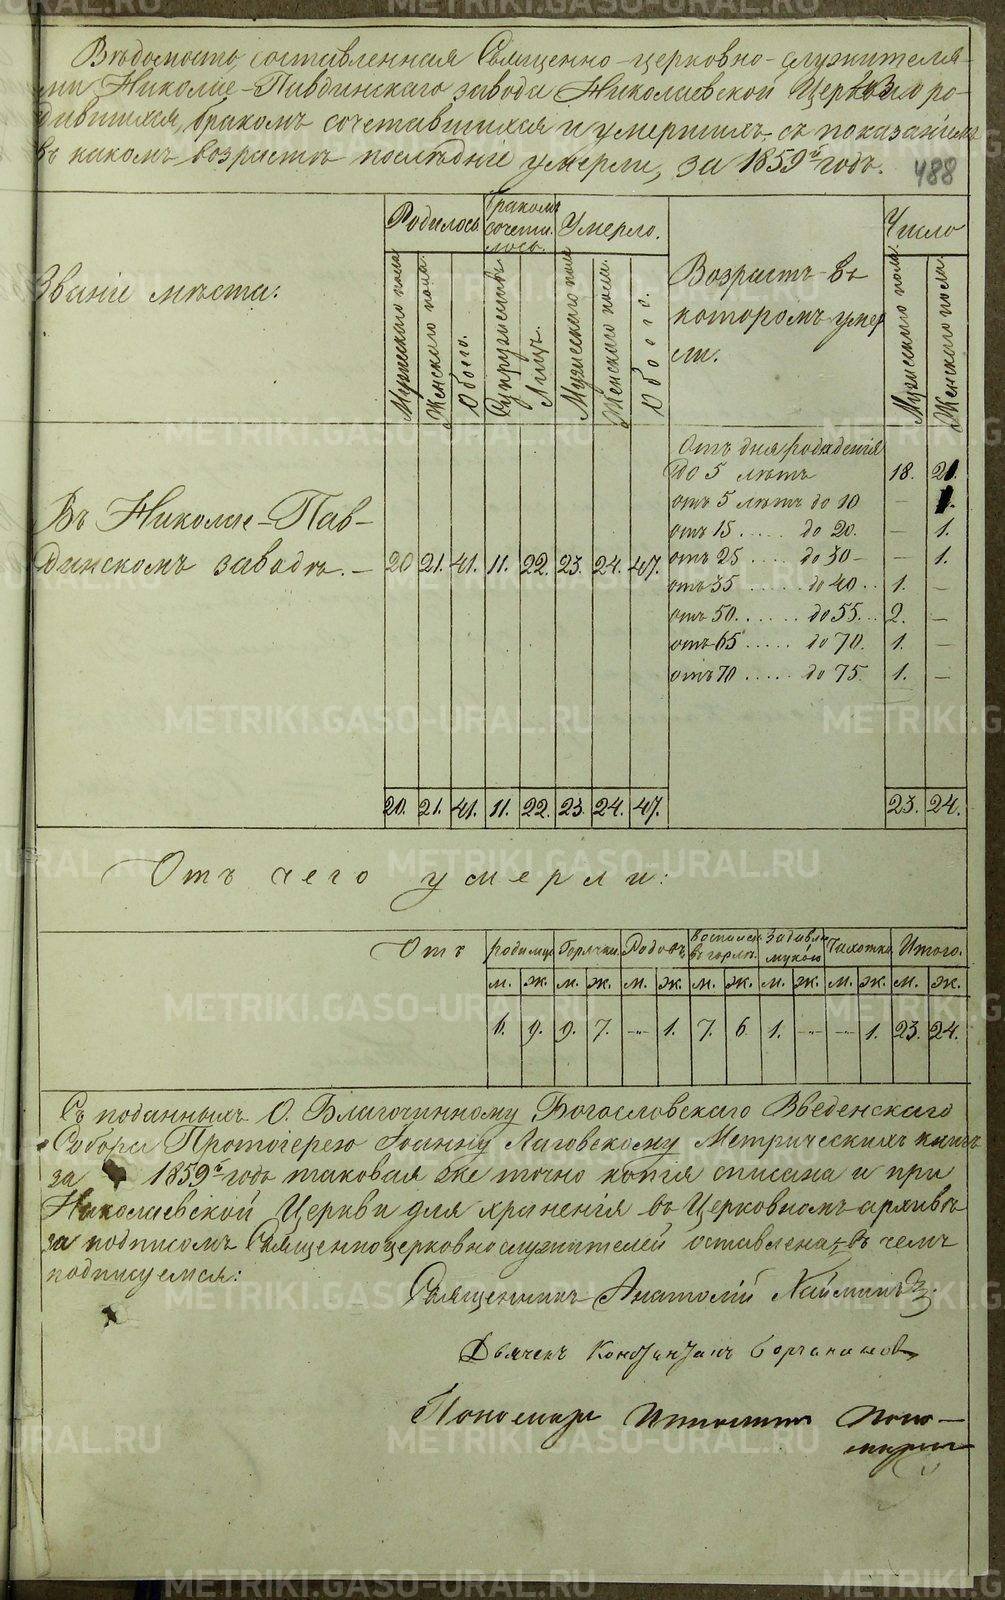 Вѣдомость составленная Священно-церковно-служителя-
ми Николае-Павдинскаго завода Николаевской Церкви о ро-
дившихся, бракомъ сочетавшихся и умершихъ съ показаніемъ
въ какомъ возрастѣ послѣдніе умерли, за 1859й годъ.
488
Званіе мѣста:
Родилось
Мужескаго пола
Женскаго пола.
Обоего.
Бракомъ сочета-
лось.
Супружествъ
Лицъ.
Умерло.
Мужескаго пола
Женскаго пола.
Обоего.
Возрастъ въ
которомъ умер
ли.
Число
Мужескаго пола.
Женскаго пола.
Въ Николае-Пав-
динскомъ заводѣ. — 20 21. 41. 11. 22. 23. 24. 47.
Отъ дня рожденія
до 5 лѣтъ 18. 21.
отъ 5 лѣтъ до 10 — 1.
отъ 15 ..... до 20. — 1.
отъ 25 .... до 30 — — 1.
отъ 35 ...... до 40.. 1. —
отъ 50....... до 55... 2. —
отъ 65 ..... до 70. 1. —
отъ 70 ..... до 75. 1. —
20. 21. 41. 11. 22. 23. 24. 47. 23. 24.
Отъ чего умерли:
Отъ родимца Горячки Родовъ Воспален. въ горлѣ. Задавл. мукою Чахотка Итого.
м. ж. м. ж. м. ж. м. ж. м. ж. м. ж. м. ж.
6. 9. 9. 7. — 1. 7. 6 1. — — 1. 23. 24.
Съ поданныхъ О. Благочинному Богословскаго Введенскаго
Собора Протоіерею Іоанну Лаговскому Метрическихъ книгъ
за 1859й годъ таковая же точно копія списана и при
Николаевской Церкви для храненія въ Церковномъ архивѣ
за подписомъ Священноцерковнослужителей оставлена, въ чемъ
подписуемся:
Священникъ Анатолій
Дьячекъ Константинъ
Пономарь Поно-
марев
METRIKI.GASO-URAL.RU